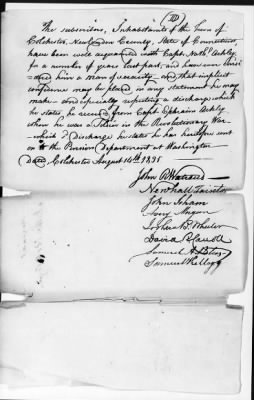 The subscribers, Inhabitants of the Town of
Colchester, New London County, State of Connecticut
have been well acquainted with Capt. Nathl. Ackley
for a number of years last past, and have ever
him a man of veracity and that implicit
confidence may be placed in any statement he may
make and especially respecting a discharge which
he states he received from Capt Ephraim Ackley
when he was a Soldier in the Revolutionary War
which Discharge he states he has heretofore sent
on to the Pension Department at Washington
Dated Colchester August 10th 1835
John R Watrous
Newhall Taintor
John Isham
Joshua B. Wheeler
David
Samuel A.
Samuel Kellogg